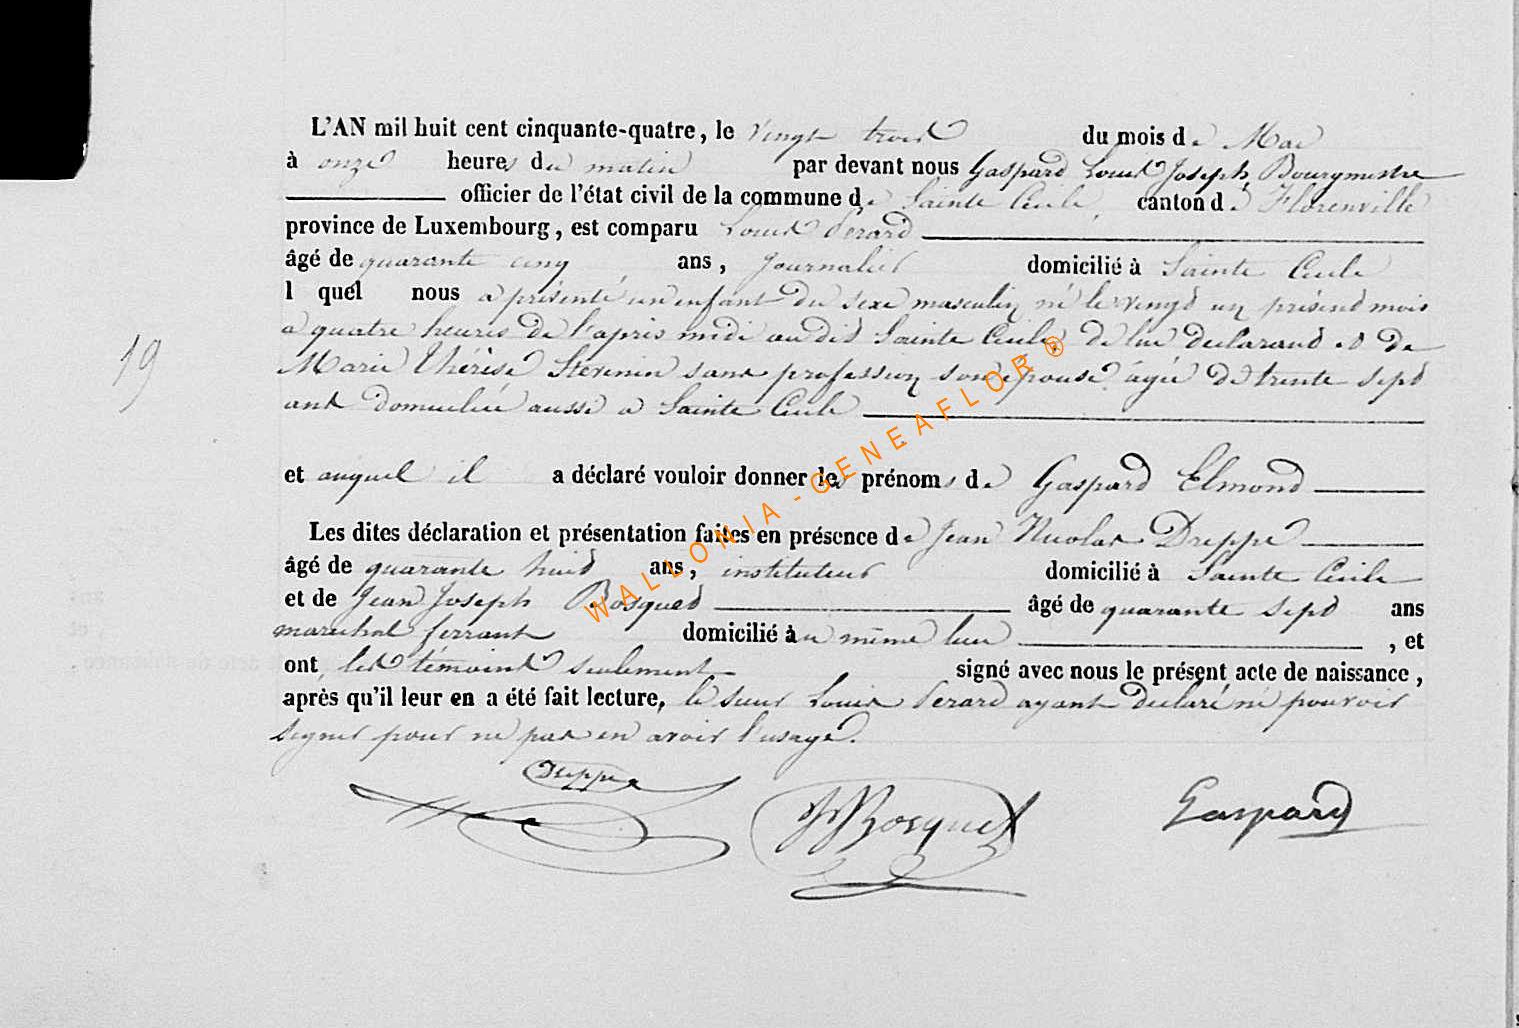 L'AN mil huit cent cinquante-quatre, le vingt trois du mois de Mai
à onze heures du matin par devant nous Gaspard Louis Joseph, Bourgmestre
officier de l'état civil de la commune de Sainte Cecile, canton de Florenville
province de Luxembourg, est comparu Louis Perard
âgé de quarante cinq ans, journalier domicilié à Sainte Cecile
l quel nous a présenté un enfant du sexe masculin né le vingt un présent mois
a quatre heures de l'après midi au dit Sainte Cecile, de lui declarant et de
19
Marie Thérèse Stevenin sans profession son épouse, âgée de trente sept
ans domiciliée aussi a Sainte Cecile
et auquel il a déclaré vouloir donner les prénoms de Gaspard Elmond
Les dites déclaration et présentation faites en présence de Jean Nicolas Dreppe
âgé de quarante huit ans, instituteur domicilié à Sainte Cecile
et de Jean Joseph Bosquet âgé de quarante sept ans
marechal ferrant domicilié au même lieu, et
ont les témoins seulement signé avec nous le présent acte de naissance,
après qu'il leur en a été fait lecture, le sieur Louis Perard ayant declaré ne pouvoir
signer pour ne pas en avoir l'usage.
Dreppe JJBosquet Gaspard
WALLONIA-GENEAFLOR®